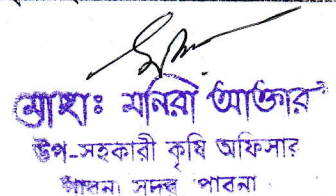 মোছাঃ মনিরা আক্তার
উপ-সহকারী কৃষি অফিসার
পাবনা সদর পাবনা